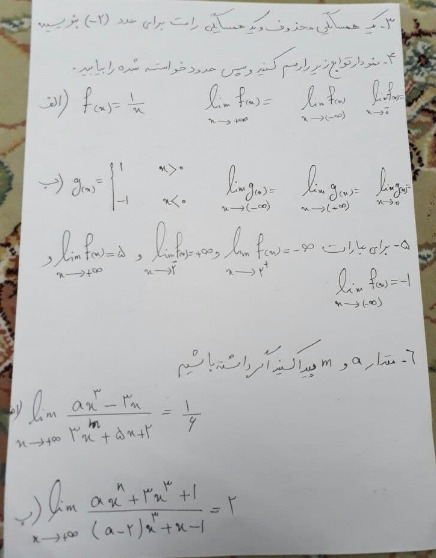 ۳- یک همسایگی محذوف و یک همسایگی راست برای عدد (۲-) بنویسید
۴- نمودار توابع زیر را رسم کنید و سپس حدود خواسته شده را بیابید.
الف) f(x) = 1/x   lim x→+∞ f(x) =   lim x→(-∞) f(x)   lim x→0 f(x) =
ب) g(x) = { 1  x>0 ; -1  x<0   lim x→(-∞) g(x) =   lim x→(+∞) g(x) =   lim x→0 g(x) =
۵- برای عبارات lim x→۲⁺ f(x) = -∞ و lim x→۲⁻ f(x) = +∞ و lim x→+∞ f(x) = ۵ و
lim x→(-∞) f(x) = -1
۶- مقدار a و m پیدا کنید اگر داشته باشیم
الف) lim x→+∞ (ax³ - ۳x)/(۳xᵐ + ۵x + ۲) = 1/۶
ب) lim x→+∞ (axⁿ + ۳x³ + 1)/((a-۲)x³ + x - 1) = ۲